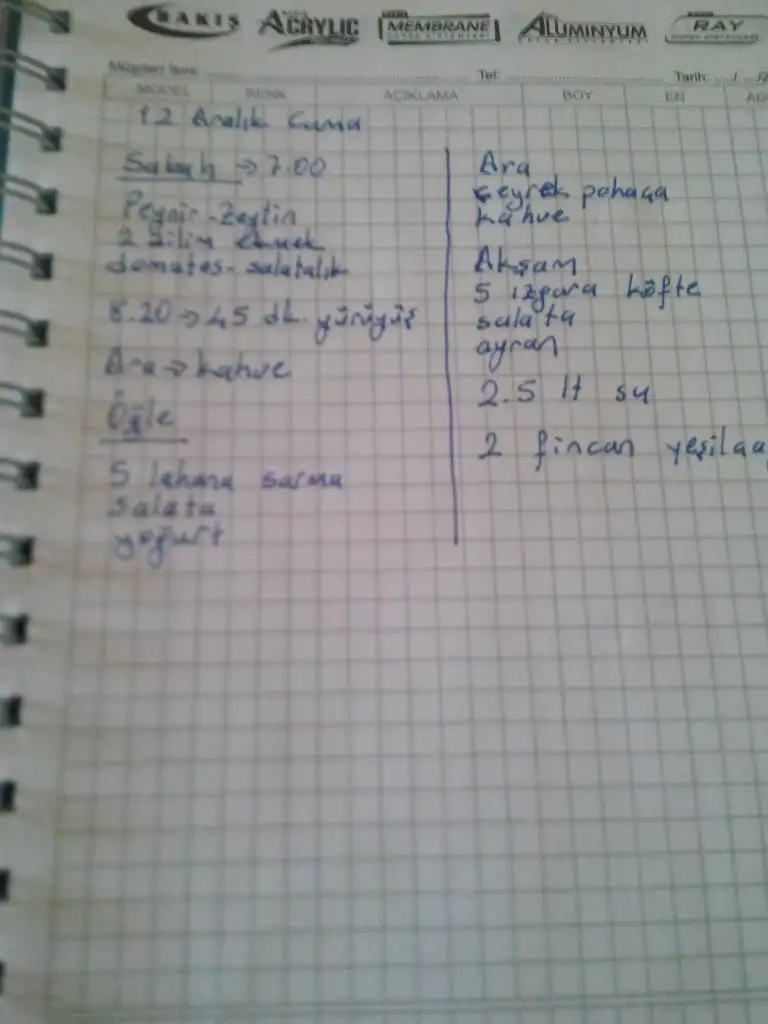 BAKIŞ ACRYLIC MEMBRANE ALUMINYUM RAY
Müşteri İsmi: Tel: Tarih: / /
MODEL RENK AÇIKLAMA BOY EN
12 Aralık Cuma
Sabah → 7.00
Peynir - Zeytin
2 Dilim Ekmek
domates - salatalık
8.20 → 45 dk. yürüyüş
Ara → kahve
Öğle
5 lahana sarma
salata
yoğurt
Ara
çeyrek pohaça
kahve
Akşam
5 ızgara köfte
salata
ayran
2.5 lt su
2 fincan